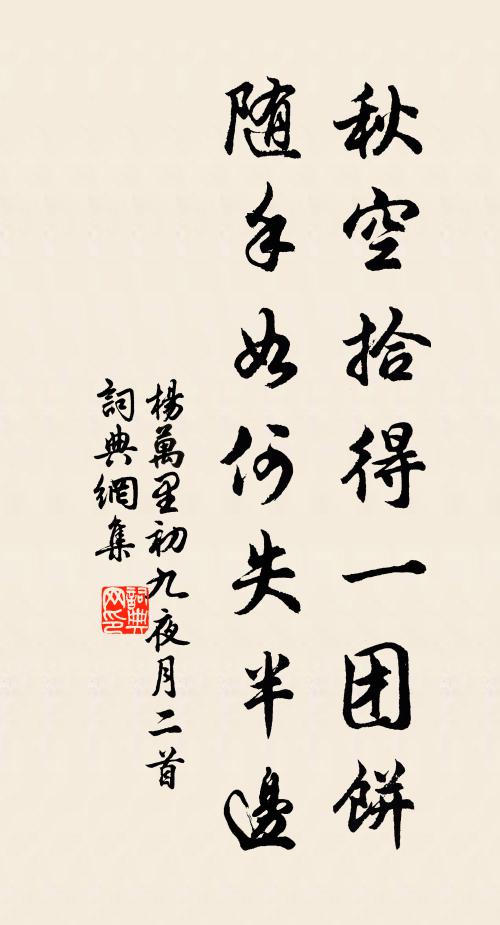 秋空拾得一团餅
随手如何失半邊
楊萬里初九夜月二首
詞典網集
詞典网印